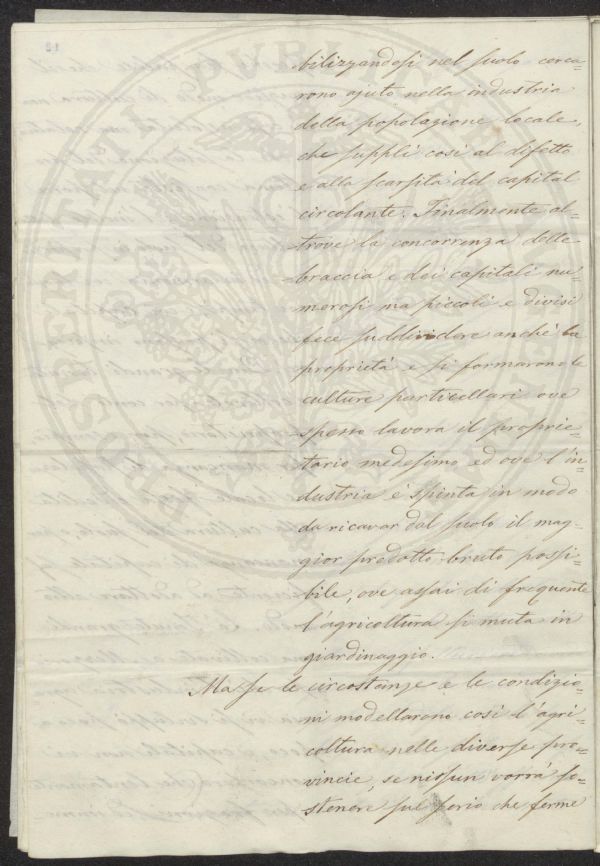 bilizzandosi nel suolo cerca-
rono ajuto nella industria
della popolazione locale,
che supplì così al difetto
e alla scarsità del capital
circolante. Finalmente al-
trove la concorrenza delle
braccia e dei capitali nu-
merosi ma piccoli e divisi
fece suddividere anche la
proprietà e si formarono le
culture particellari ove
spesso lavora il proprie-
tario medesimo ed ove l'in-
dustria è spinta in modo
da ricavar dal suolo il mag-
gior prodotto brutto possi-
bile, ove assai di frequente
l'agricoltura si muta in
giardinaggio.
Ma se le circostanze e le condizio-
ni modellarono così l'agri-
coltura nelle diverse pro-
vincie, se nissun vorrà so-
stenere sul serio che ferme
PROSPERITATI PUBLICAE